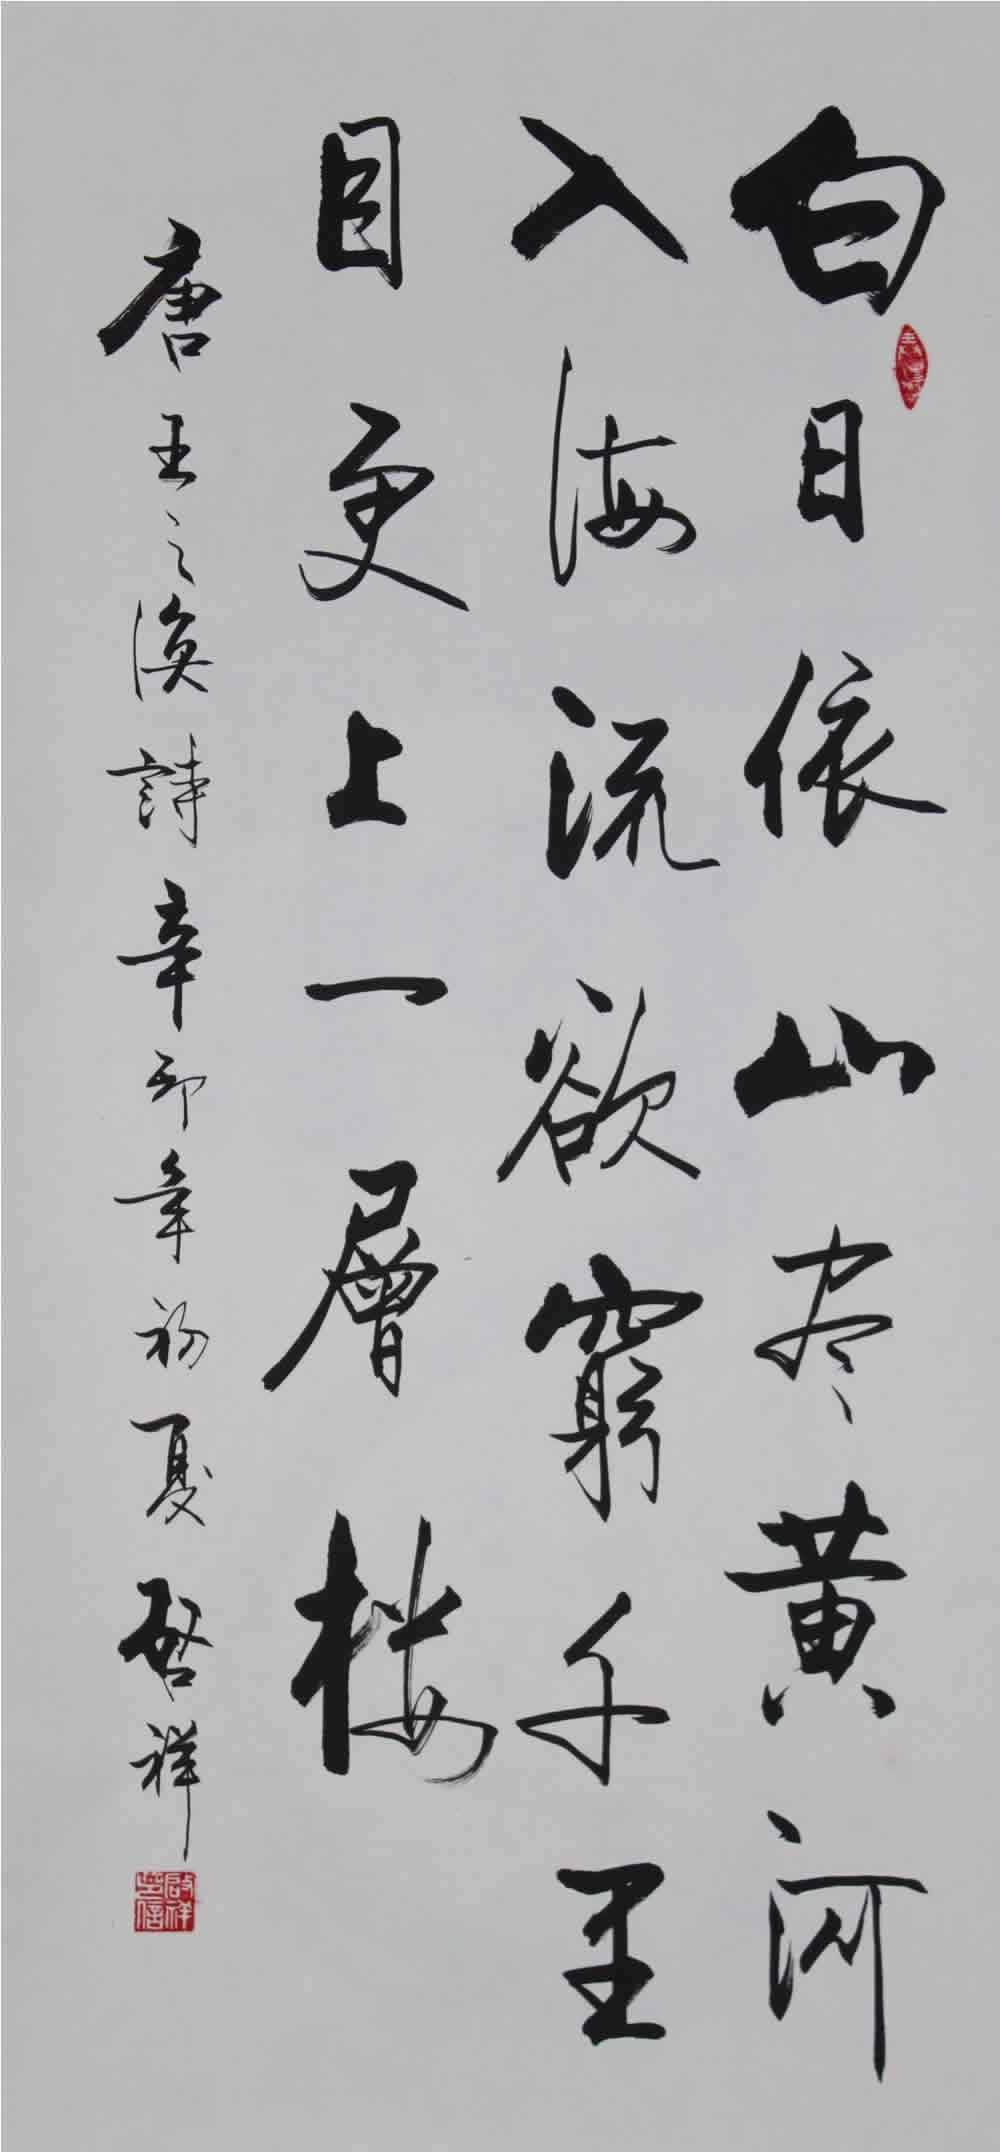 白日依山尽黄河
入海流欲窮千里
目更上一層楼
唐王之渙詩辛卯年初夏啓祥
啟祥印信